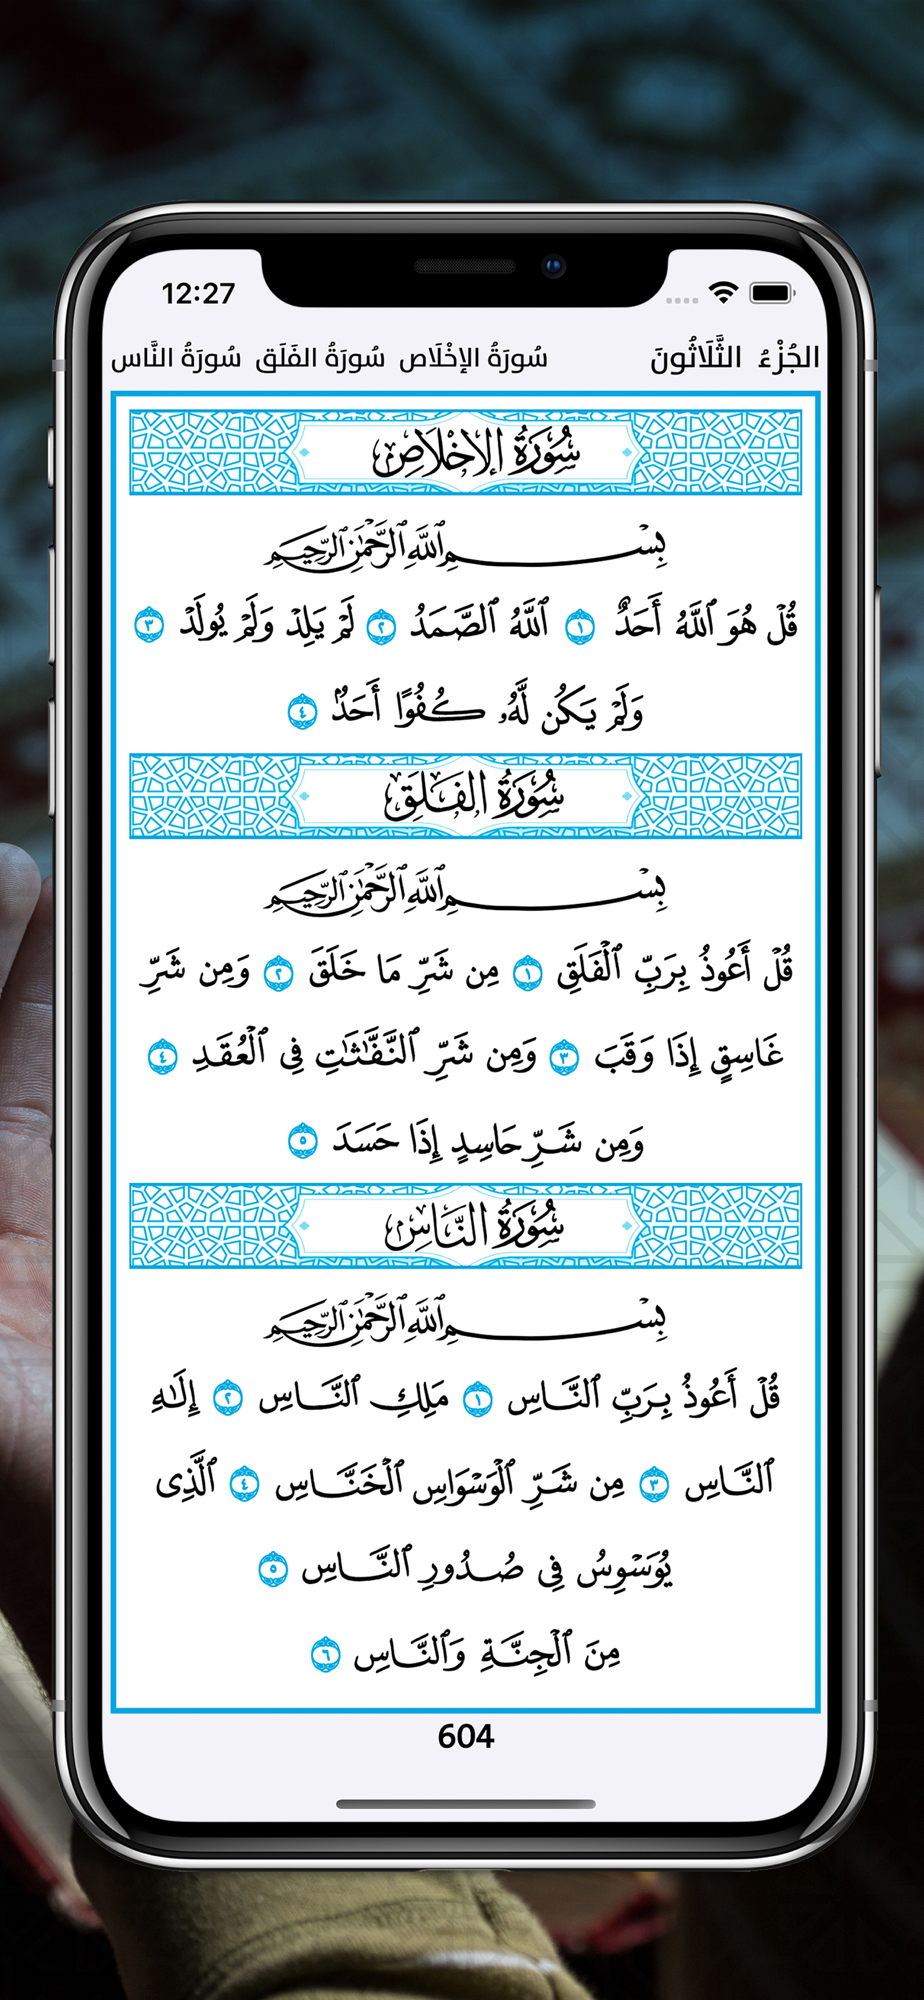 12:27
الجُزْءُ الثَّلَاثُونَ سُورَةُ الإِخْلَاص سُورَةُ الفَلَق سُورَةُ النَّاس
سُورَةُ الإِخْلَاصِ
بِسْمِ ٱللَّهِ ٱلرَّحْمَٰنِ ٱلرَّحِيمِ
قُلْ هُوَ ٱللَّهُ أَحَدٌ ١ ٱللَّهُ ٱلصَّمَدُ ٢ لَمْ يَلِدْ وَلَمْ يُولَدْ ٣
وَلَمْ يَكُن لَّهُۥ كُفُوًا أَحَدٌۢ ٤
سُورَةُ الفَلَقِ
بِسْمِ ٱللَّهِ ٱلرَّحْمَٰنِ ٱلرَّحِيمِ
قُلْ أَعُوذُ بِرَبِّ ٱلْفَلَقِ ١ مِن شَرِّ مَا خَلَقَ ٢ وَمِن شَرِّ
غَاسِقٍ إِذَا وَقَبَ ٣ وَمِن شَرِّ ٱلنَّفَّٰثَٰتِ فِى ٱلْعُقَدِ ٤
وَمِن شَرِّ حَاسِدٍ إِذَا حَسَدَ ٥
سُورَةُ النَّاسِ
بِسْمِ ٱللَّهِ ٱلرَّحْمَٰنِ ٱلرَّحِيمِ
قُلْ أَعُوذُ بِرَبِّ ٱلنَّاسِ ١ مَلِكِ ٱلنَّاسِ ٢ إِلَٰهِ
ٱلنَّاسِ ٣ مِن شَرِّ ٱلْوَسْوَاسِ ٱلْخَنَّاسِ ٤ ٱلَّذِى
يُوَسْوِسُ فِى صُدُورِ ٱلنَّاسِ ٥
مِنَ ٱلْجِنَّةِ وَٱلنَّاسِ ٦
604